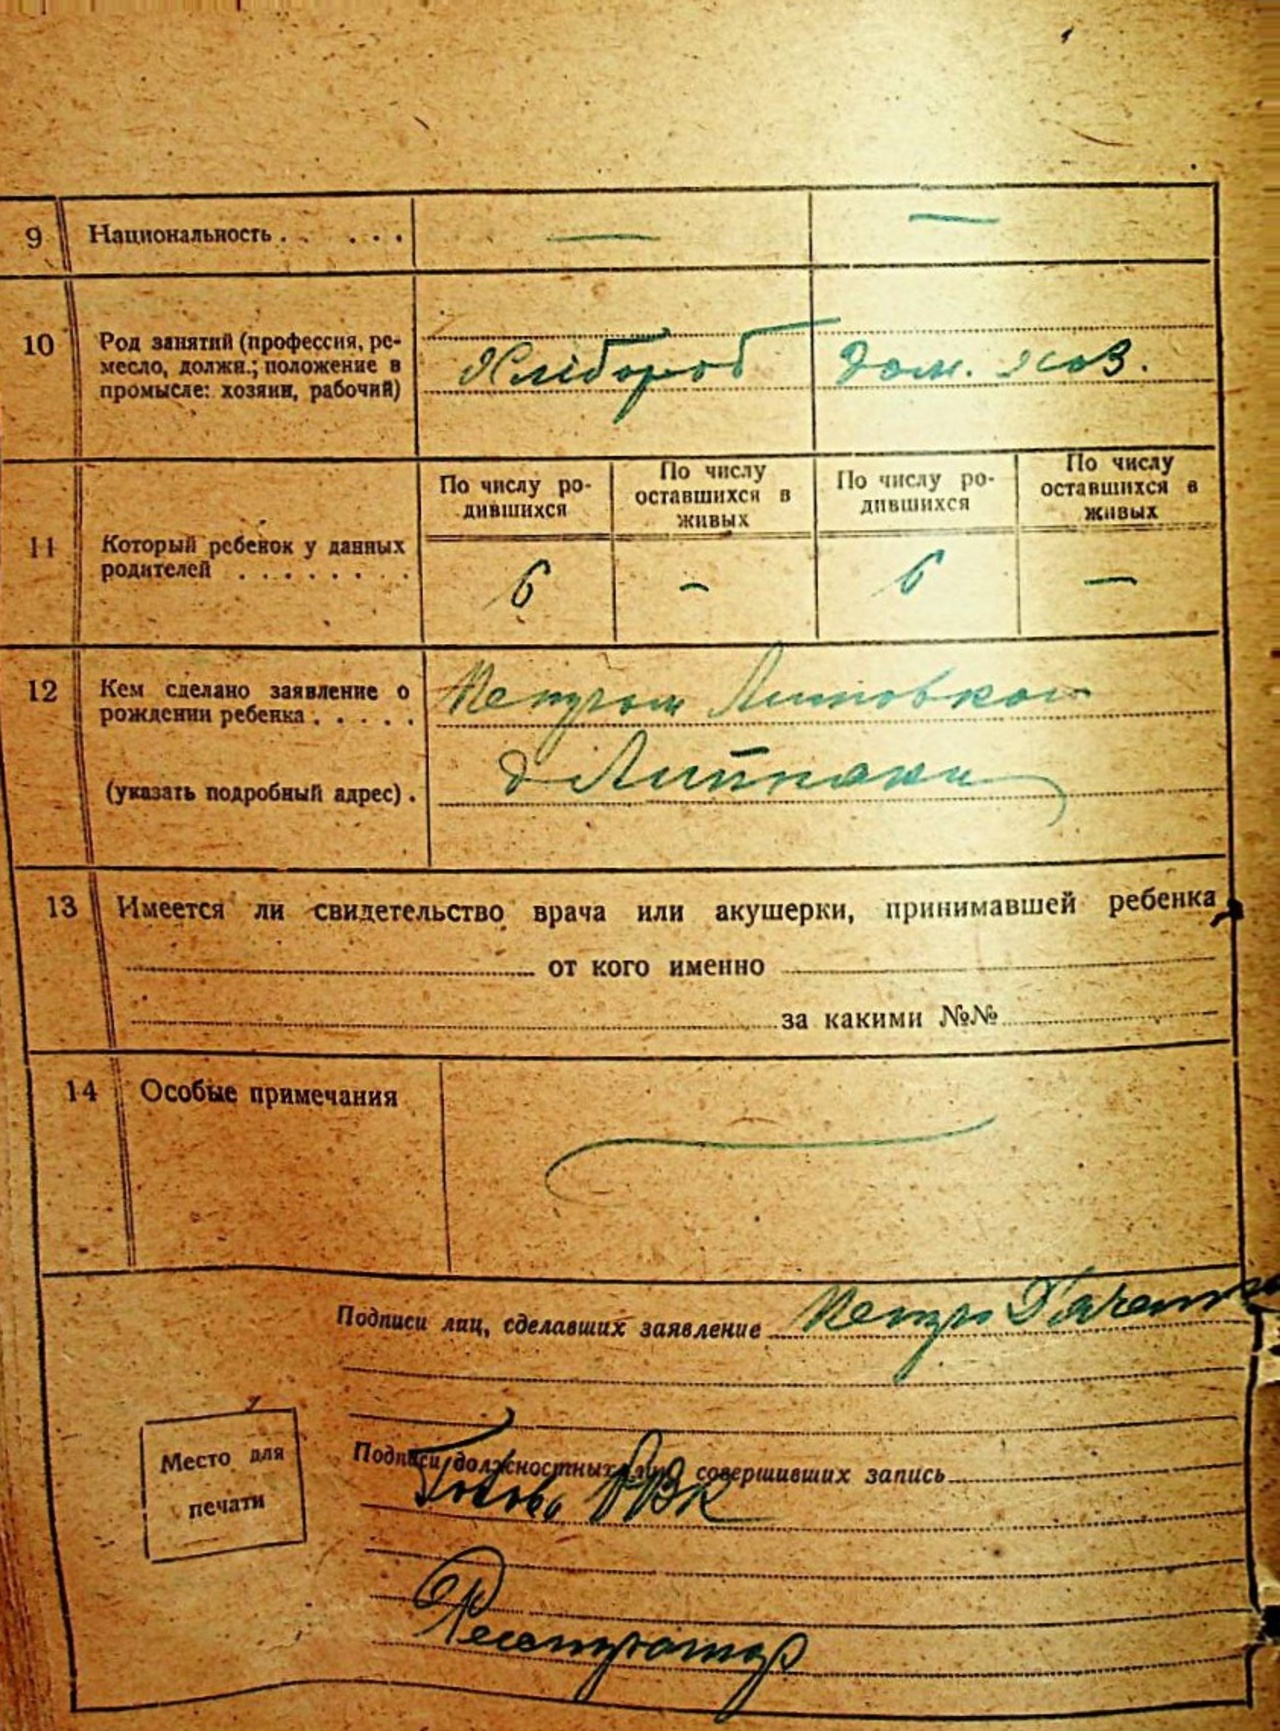 9 Национальность . . . . . — —
10 Род занятий (профессия, ре-
месло, должн.; положение в
промысле: хозяин, рабочий)
Хлібороб Дом. хоз.
По числу ро-
дившихся
По числу
оставшихся в
живых
По числу ро-
дившихся
По числу
оставшихся в
живых
11 Который ребенок у данных
родителей . . . . . . . .
6 — 6 —
12 Кем сделано заявление о
рождении ребенка . . . . .
Петром Литовкою
(указать подробный адрес) .
13 Имеется ли свидетельство врача или акушерки, принимавшей ребенка
от кого именно
за какими №№
14 Особые примечания
Подписи лиц, сделавших заявление Петро
Подписи должностных лиц, совершивших запись
Голова
Место для
печати